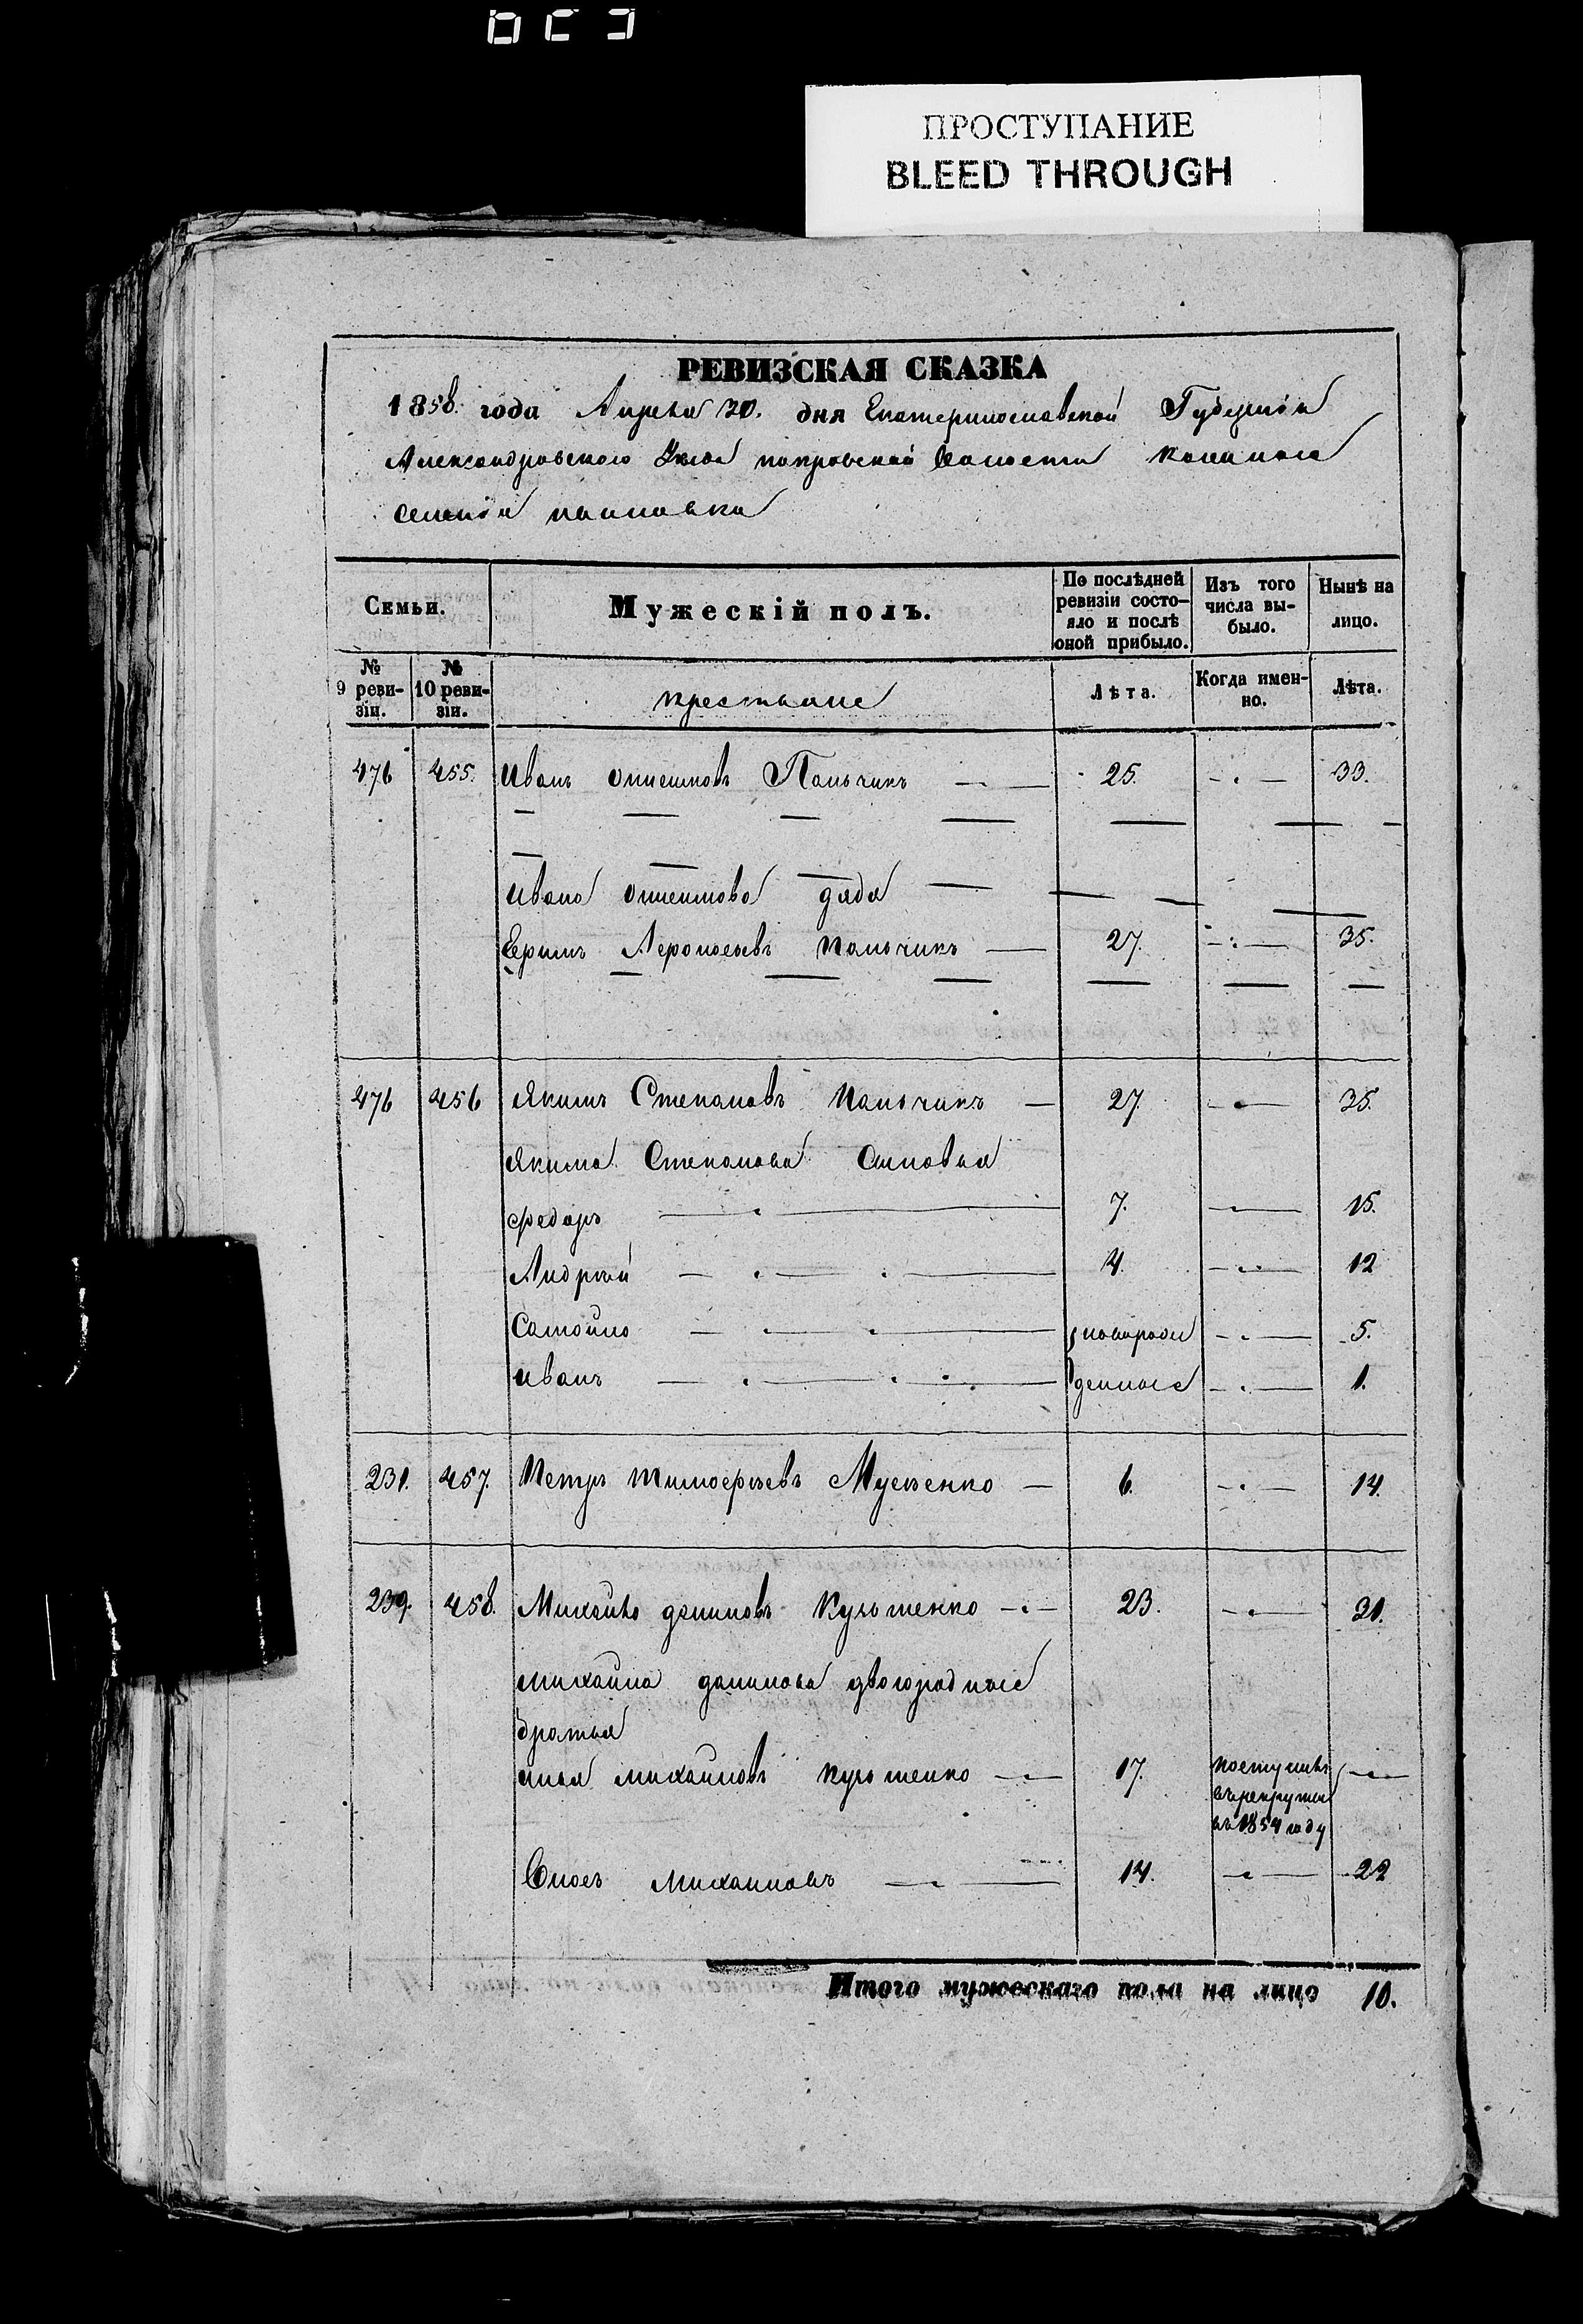 ПРОСТУПАНИЕ
BLEED THROUGH
РЕВИЗСКАЯ СКАЗКА
1858. года Апреля 30. дня Екатеринославской Губернiи
Александровского Уезда покровской Волости казенное
селенiя
Семьи. Мужескій полъ. По послѣдней ревизіи состо-яло и послѣ оной прибыло. Изъ того числа вы-было. Нынѣ на лицо.
№ 9 реви-зіи. № 10 реви-зіи. крестьяне Лѣта. Когда имен-но. Лѣта.
476 455. Иванъ Пальчикъ 25. 33.
Ивана дядя
Пальчикъ 27. 35.
476 456 Якимъ Степановъ Пальчикъ 27. 35.
Якима Степанова Сыновья
Федоръ 7. 15.
Андрѣй 4. 12
Самойло новорож 5.
Иванъ денные 1.
231. 457. Петръ Тимофѣевъ Мусѣенко 6. 14.
239. 458. Михайло даниловъ Кузьменко 23. 31.
михайла данилова двоюродные
братья
илья михайловъ кузьменко 17. поступилъ
въ рекруты
въ 1854 году
михайловъ 14. 22
Итого мужескаго пола на лицо 10.